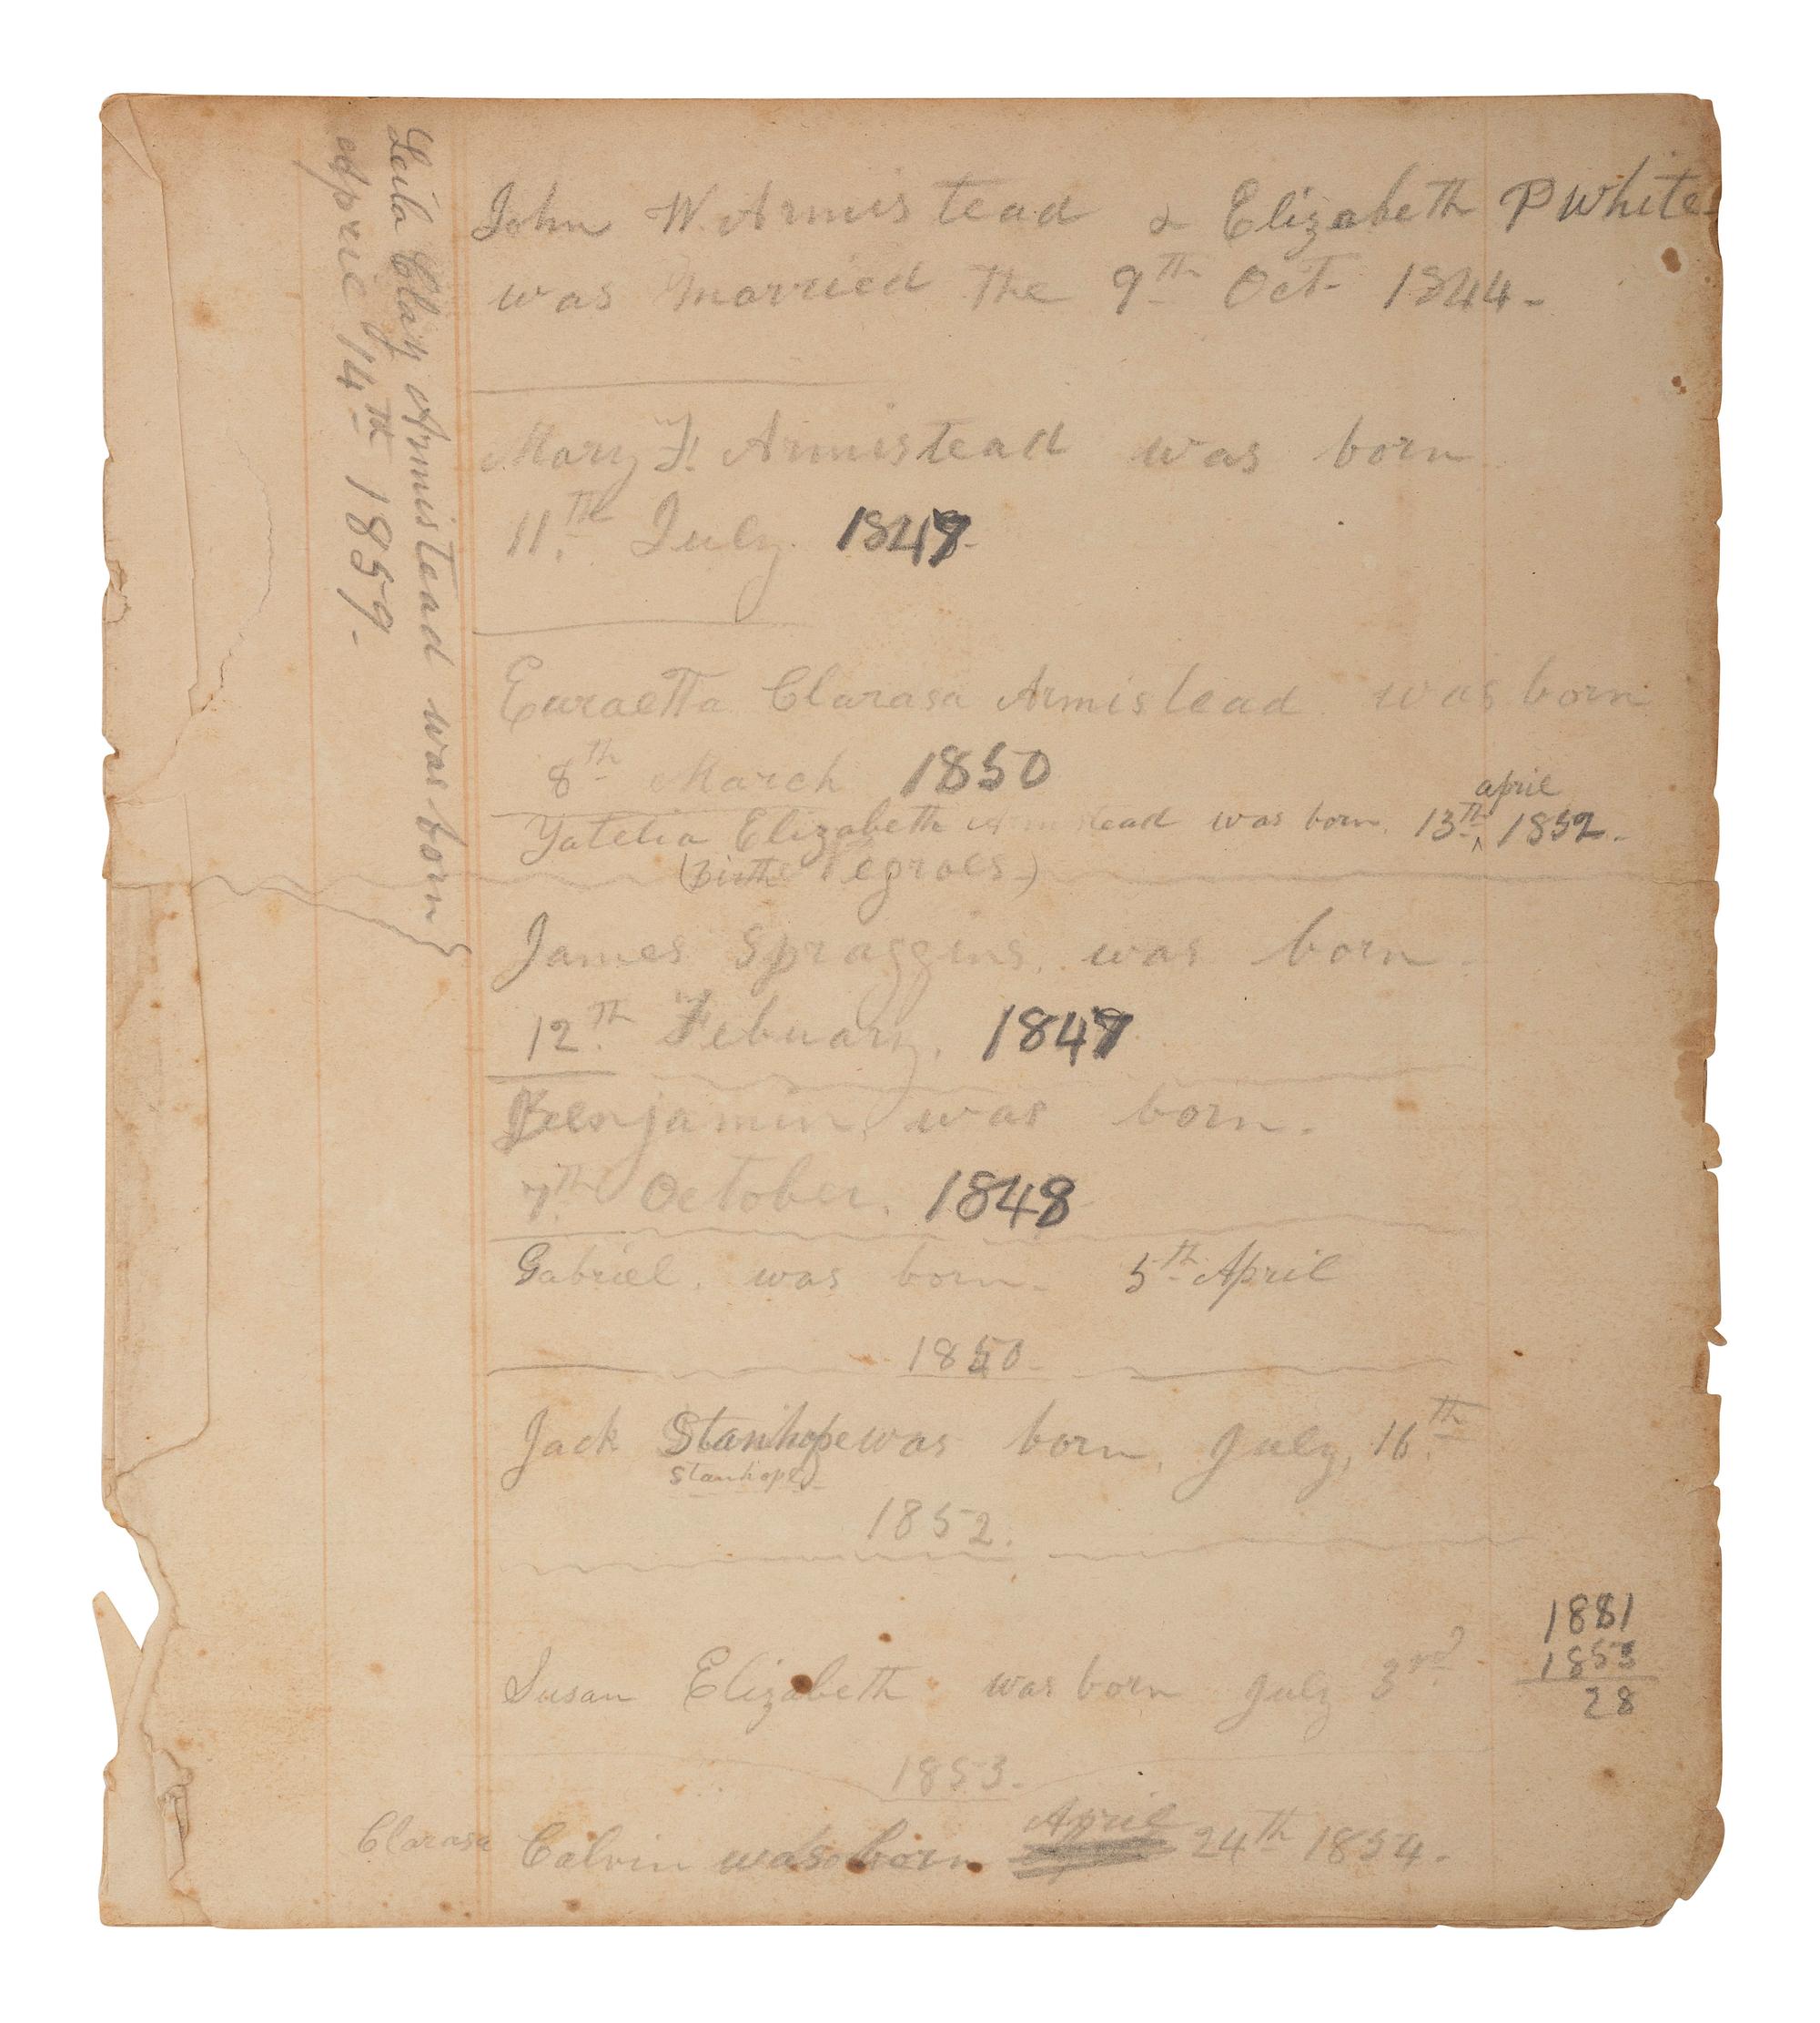 John W. Armistead & Elizabeth P White
was married the 9th Oct. 1844-
Mary F. Armistead was born
11th July
Euraetta Clarasa Armistead was born
8th March 1850
april
Elizabeth Armistead was born. 13th ^ 1852.
(Births Negroes.)
James Spraggins. was born.
12th Febuary.
Benjamin was born.
7th October. 1848
Gabriel. was born. 5th April
1850-
Jack Stanhope was born. July, 16th
Stanhope
1852.
1881
1853
28
Susan Elizabeth was born July 3rd
1853.
April
Clarasa Calvin was born 24th 1854.
Leila Clay Armistead was born
April 14th 1859-